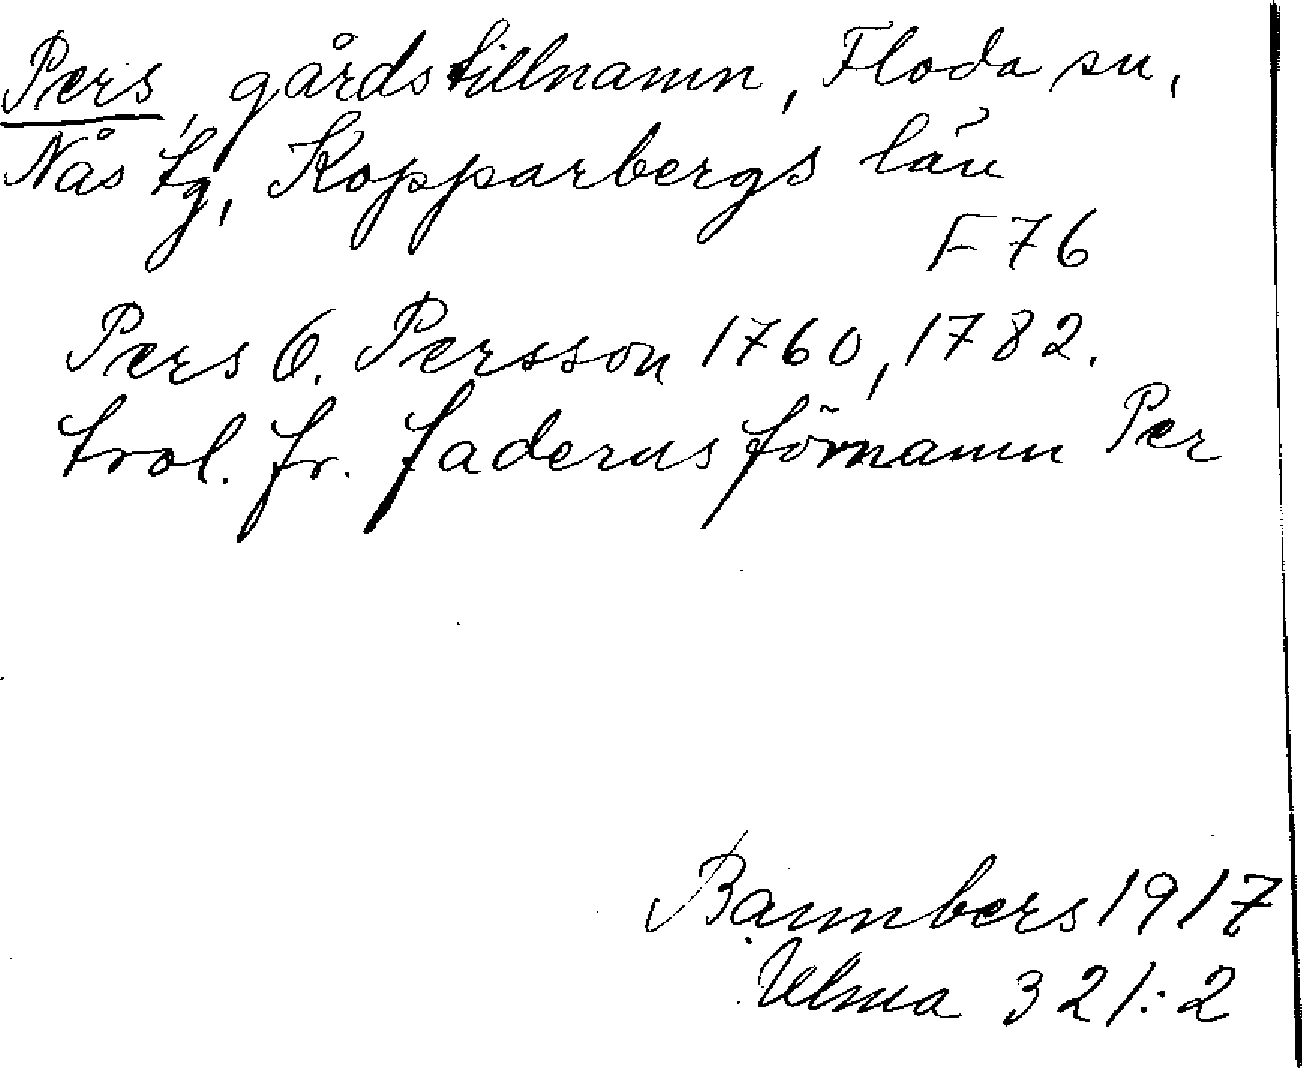 Pers, gårdstillnamn, Floda sn,
Nås tg, Kopparbergs län
F 76
Pers O. Persson 1760, 1782.
trol. fr. faderns förnamn Per
Bannbers 1917
Ulma 321:2